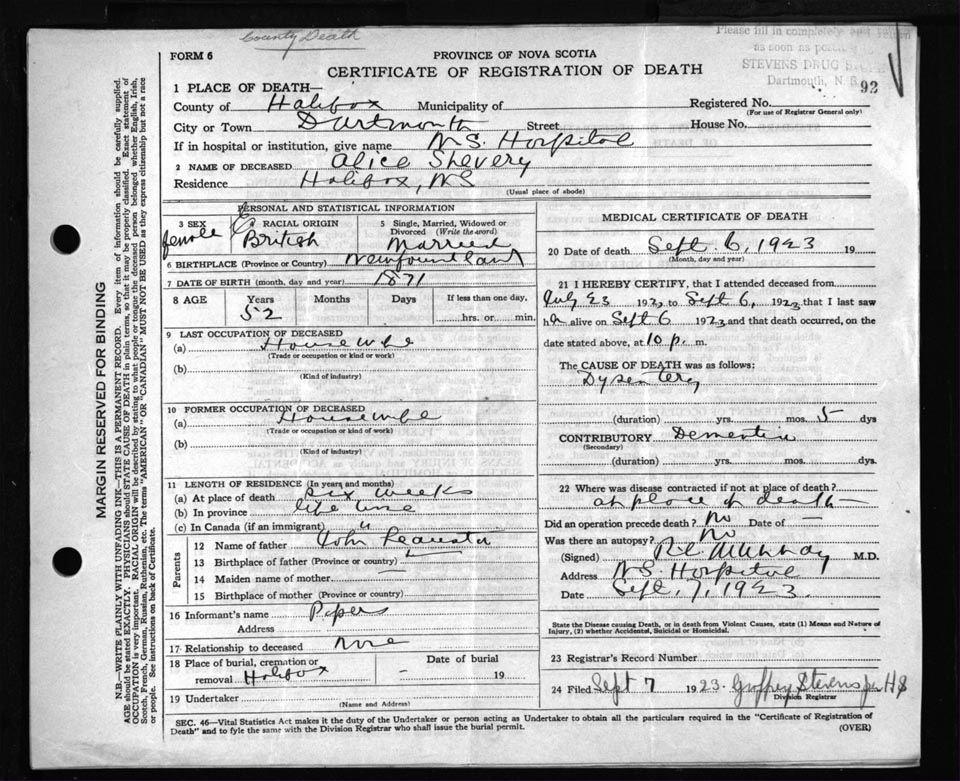 County Death
Please fill in completely and return
as soon as
STEVENS DRUG
Dartmouth, N. S.
92
FORM 6
PROVINCE OF NOVA SCOTIA
CERTIFICATE OF REGISTRATION OF DEATH
1 PLACE OF DEATH—
County of Halifax Municipality of
Registered No.
(For use of Registrar General only)
City or Town Dartmouth Street House No.
If in hospital or institution, give name N.S. Hospital
2 NAME OF DECEASED Alice Shevery
Residence Halifax, NS
(Usual place of abode)
PERSONAL AND STATISTICAL INFORMATION
3 SEX female
4 RACIAL ORIGIN British
5 Single, Married, Widowed or Divorced (Write the word) Married
6 BIRTHPLACE (Province or Country) Newfoundland
7 DATE OF BIRTH (month, day and year) 1871
8 AGE Years Months Days If less than one day,
52 hrs. or min.
9 LAST OCCUPATION OF DECEASED
(a) Housewife
(Trade or occupation or kind or work)
(b)
(Kind of industry)
10 FORMER OCCUPATION OF DECEASED
(a) Housewife
(Trade or occupation or kind of work)
(b)
(Kind of industry)
11 LENGTH OF RESIDENCE (In years and months)
(a) At place of death six weeks
(b) In province life time
(c) In Canada (if an immigrant) "
Parents
12 Name of father John
13 Birthplace of father (Province or country) —
14 Maiden name of mother —
15 Birthplace of mother (Province or country)
16 Informant's name Papers
Address
17 Relationship to deceased None
18 Place of burial, cremation or removal Halifax
Date of burial
19
19 Undertaker
(Name and Address)
MEDICAL CERTIFICATE OF DEATH
20 Date of death Sept 6, 1923 19
(Month, day and year)
21 I HEREBY CERTIFY, that I attended deceased from
July 23 1923 to Sept 6, 1923 that I last saw
her alive on Sept 6 1923 and that death occurred, on the
date stated above, at 10 p. m.
The CAUSE OF DEATH was as follows:
Dysentery
(duration) yrs. mos. 5 dys
CONTRIBUTORY Dementia
(Secondary)
(duration) yrs. mos. dys.
22 Where was disease contracted if not at place of death?
at place of death
Did an operation precede death? No Date of —
Was there an autopsy? No
(Signed) R.C. Murray M.D.
Address N.S. Hospital
Date Sept. 7, 1923.
State the Disease causing Death, or in death from Violent Causes, state (1) Means and Nature of
Injury, (2) whether Accidental, Suicidal or Homicidal.
23 Registrar's Record Number
24 Filed Sept 7 1923. Geoffrey Stevens
Division Registrar
SEC. 46—Vital Statistics Act makes it the duty of the Undertaker or person acting as Undertaker to obtain all the particulars required in the "Certificate of Registration of
Death" and to fyle the same with the Division Registrar who shall issue the burial permit.
(OVER)
MARGIN RESERVED FOR BINDING
N.B.—WRITE PLAINLY WITH UNFADING INK—THIS IS A PERMANENT RECORD. Every item of information should be carefully supplied.
AGE should be stated EXACTLY. PHYSICIANS should STATE CAUSE OF DEATH in plain terms, so that it may be properly classified. Exact statement of
OCCUPATION is very important. RACIAL ORIGIN will be described by stating to what people or tongue the deceased person belonged whether English, Irish,
Scotch, French, German, Russian, Ruthenian, etc. The terms "AMERICAN" OR "CANADIAN" MUST NOT BE USED as they express citizenship but not a race
or people. See instructions on back of Certificate.